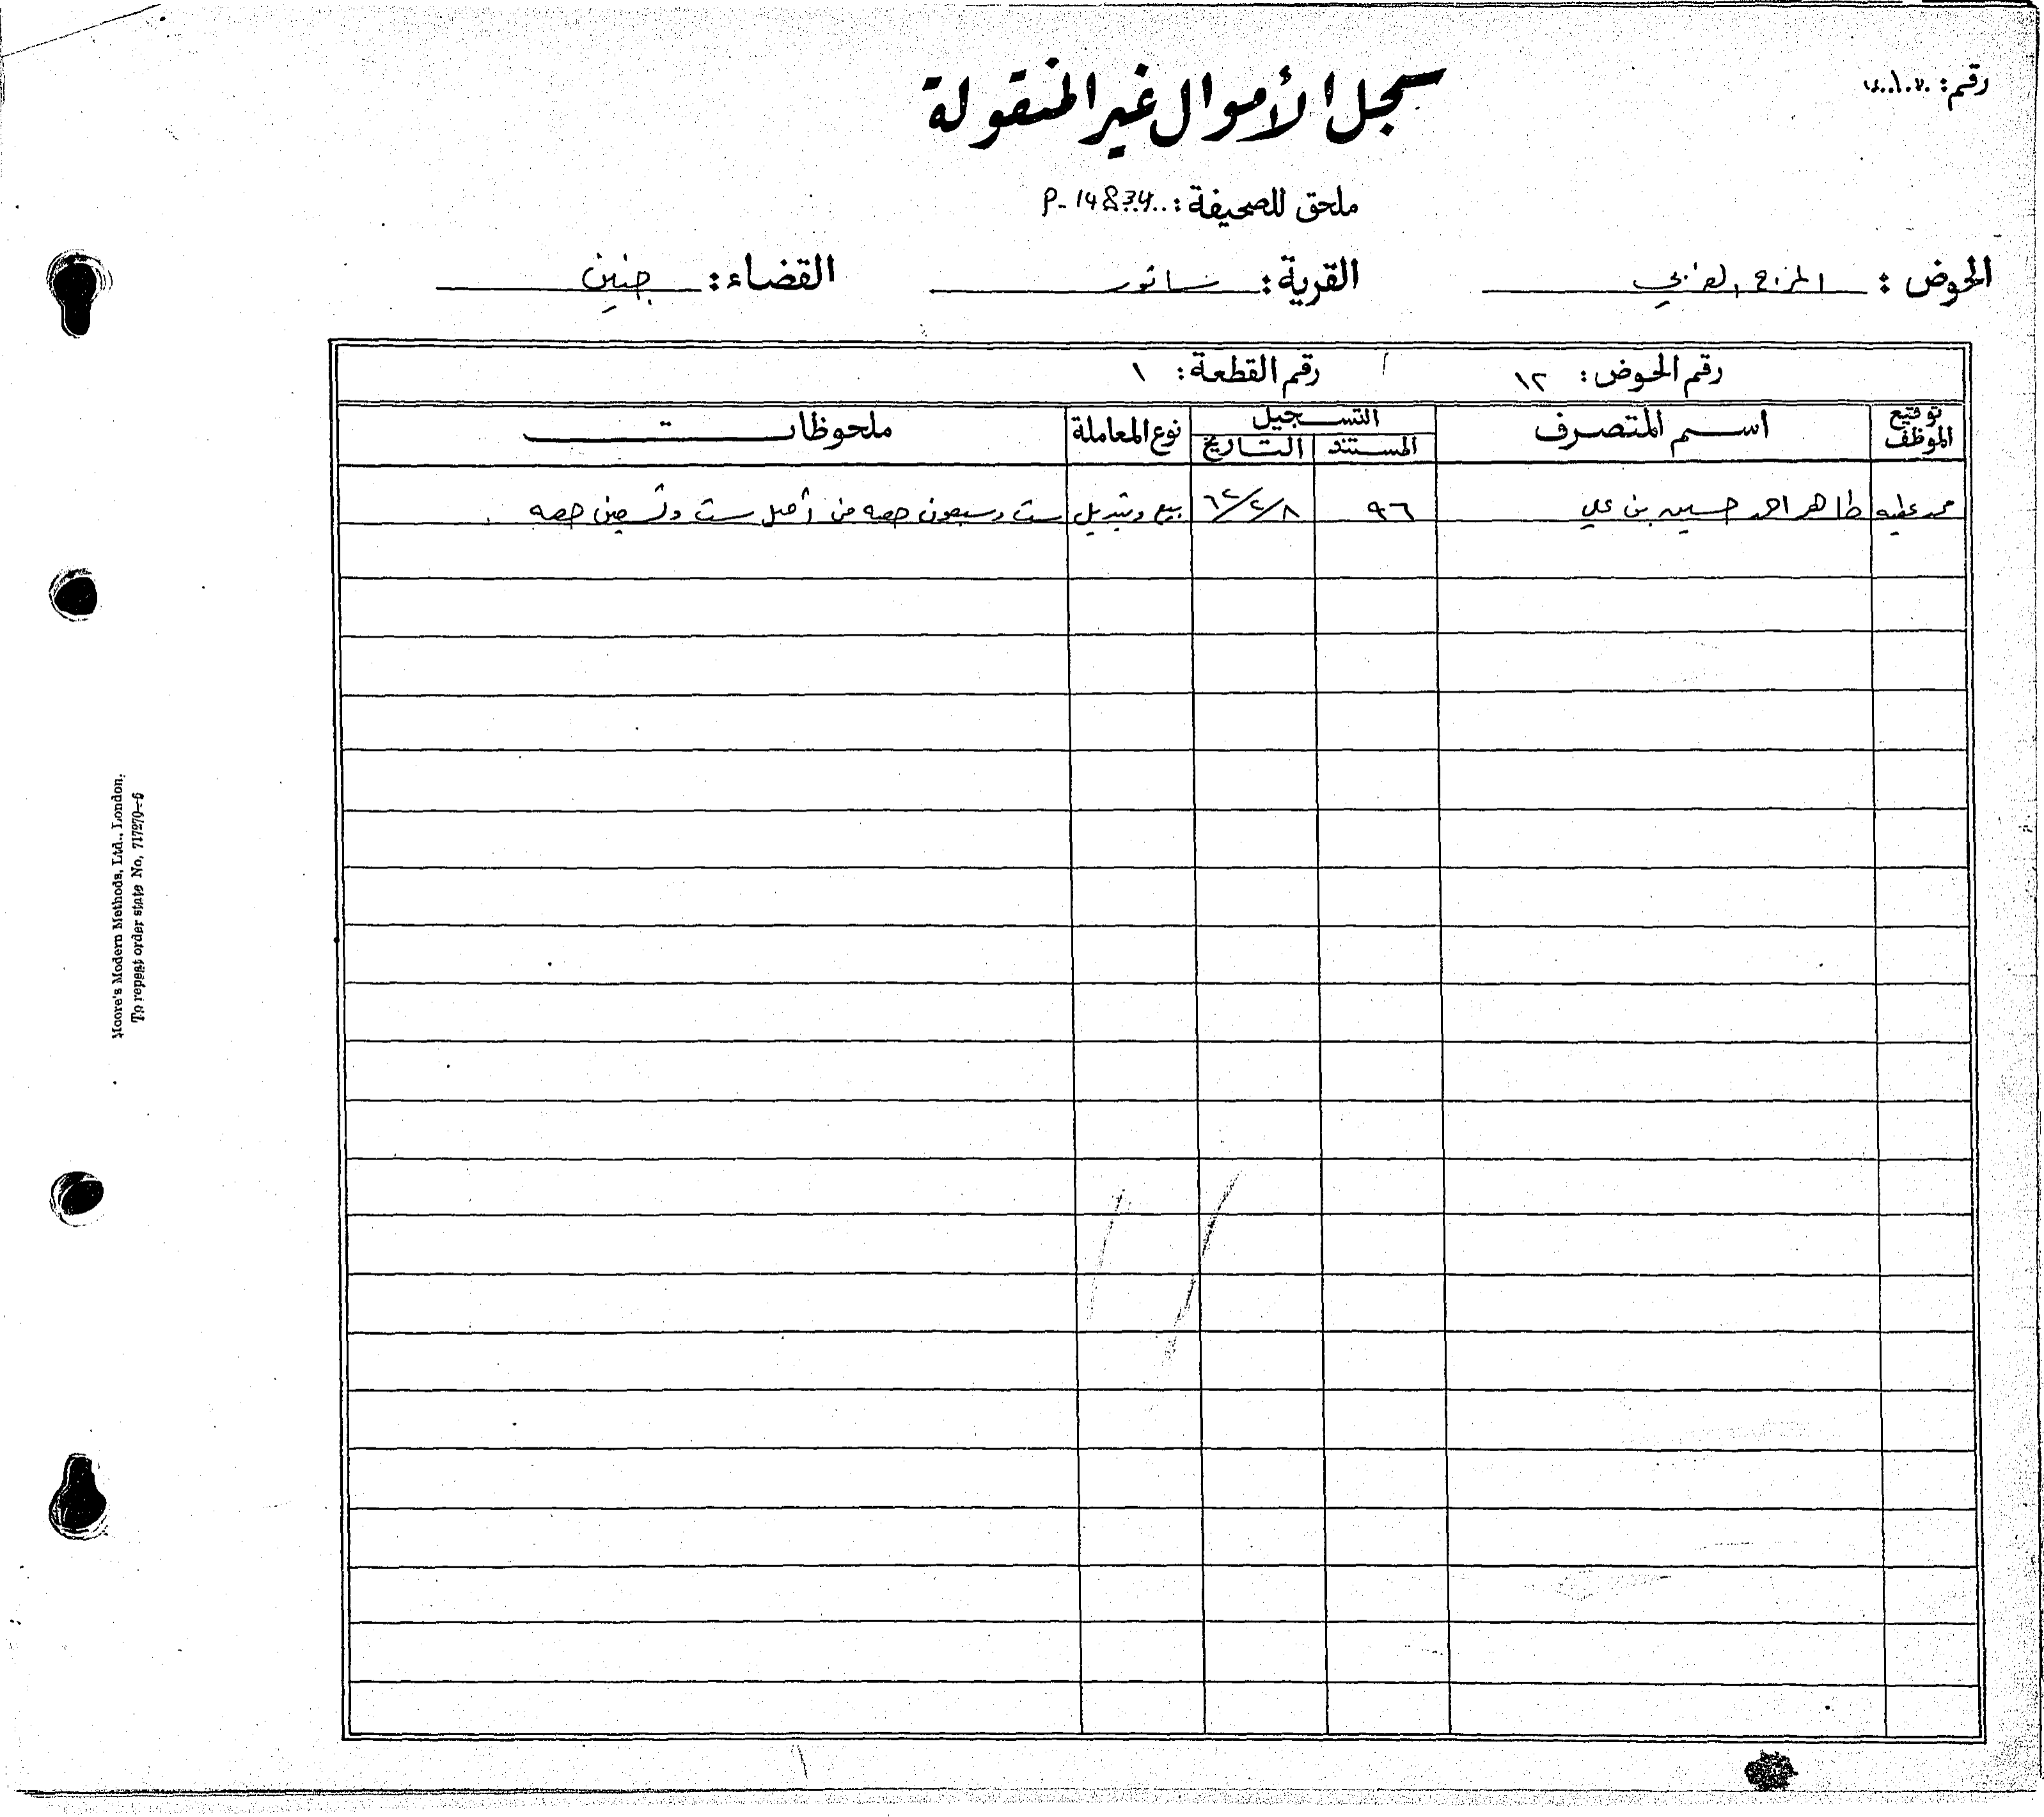 رقم:
سجل الأموال غير المنقولة
ملحق للصحيفة: P-14834
الحوض: المرج الغربي القرية: سانور القضاء: جنين
رقم الحوض: ١٢ رقم القطعة: ١
توقيع الموظف اسم المتصرف التسجيل نوع المعاملة ملحوظات
المستند التاريخ
محمد عطيه طاهر احمد حسين بن علي ٩٦ ٦٢/٢/٨ بيع وتبديل ست وسبعون حصه من أصل ست وتسعين حصه
Moore's Modern Methods, Ltd., London.
To repeat order state No, 717270-6